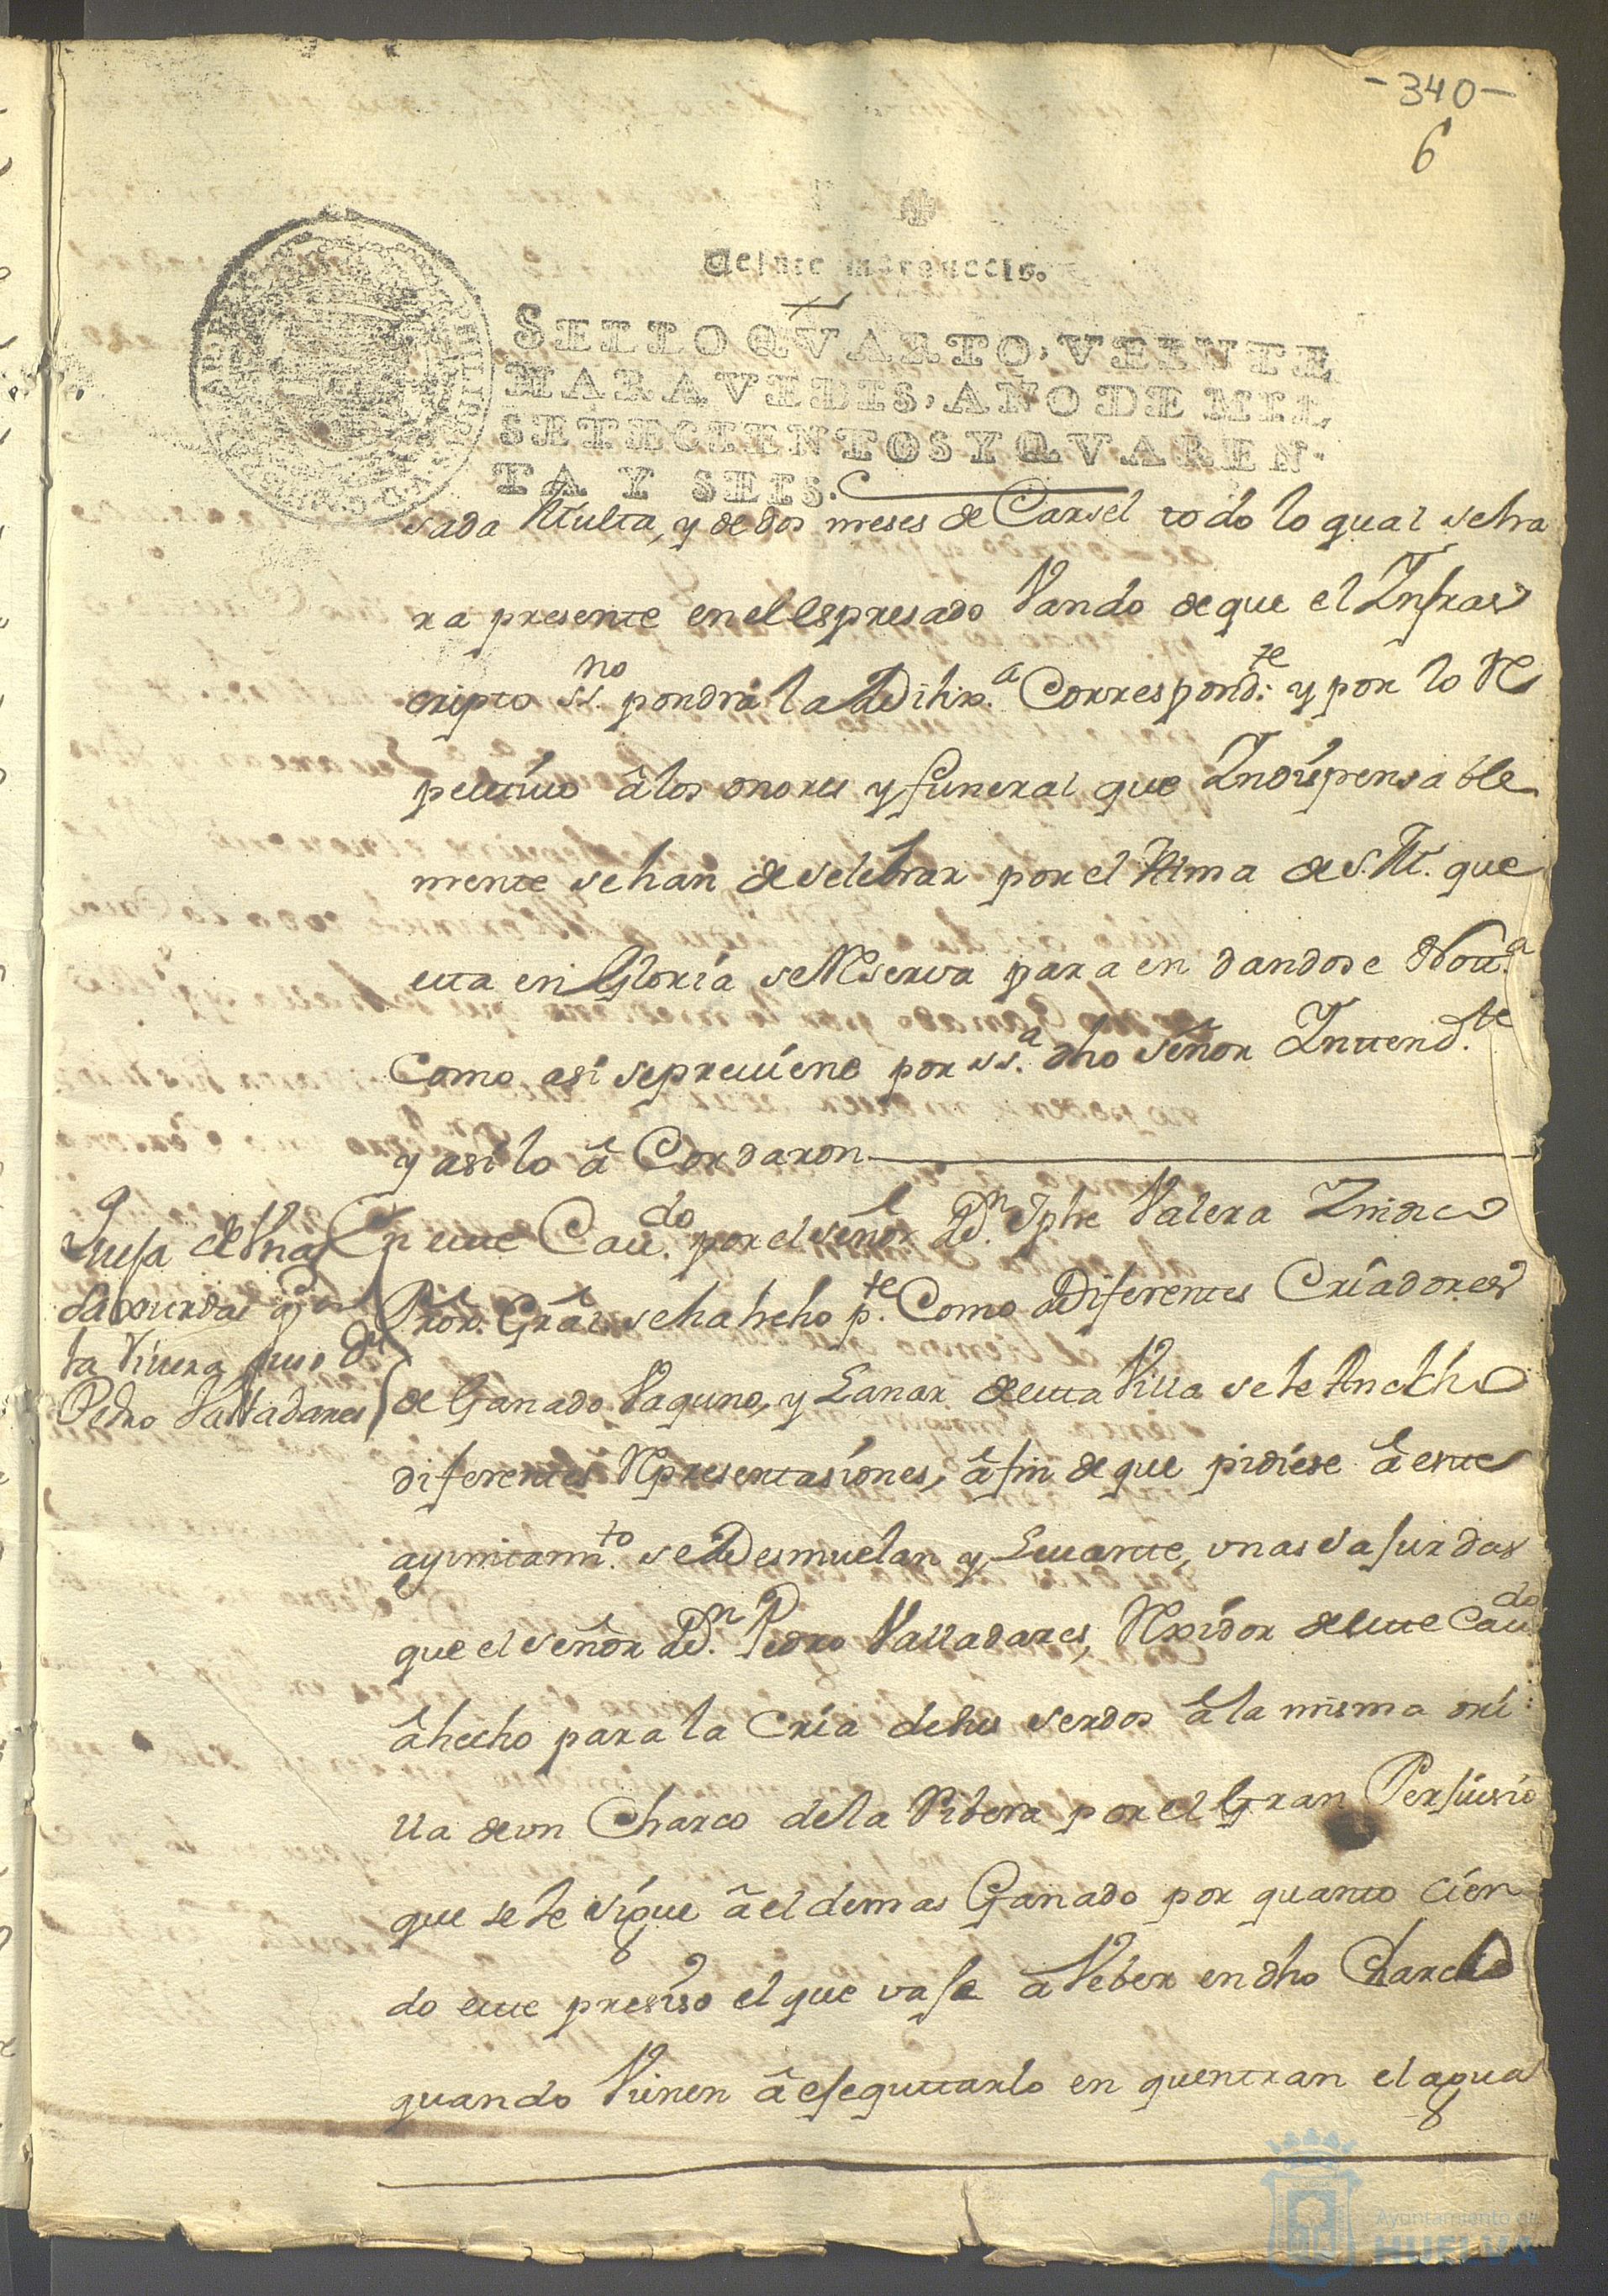 -340-
6
Veinte maravedis.
SELLO QVARTO, VEINTE
MARAVEDIS, AÑO DE MIL
SETECIENTOS Y QVAREN-
TA Y SEIS.
sada Multa, y de dos meses de Carsel todo lo qual se ha
ra presente en el Espresado Vando de que el Infras
cripto ss.no pondra la Dilix.a Correspond.te y por lo Re
pectivo â los onores y funeral que Indispensable
mente se han de selebrar por el Alma de S. M. que
esta en Gloria se Reserva para en dandose Nott.a
Como asi se previene por ss.a dho señor Inttend.te
y asi lo â Cordaron
Quesa de Unas
sajurdas q en
la Rivera puso Dn
Pedro Valladares
En este Cav.do por el señor Dn. Jphe Valera Zindico
Pror. Gral se ha hecho p.te Como Diferentes Criadores
de Ganado Vaquno, y Lanar de esta Villa se le An dho
diferentes Representasiones, â fin de que pidiese â este
ayuntam.to se Desmuelan y Levante, unas sajurdas
que el señor Dn. Pedro Valladares, Rexidor de este Cavdo
â hecho para la Cria de sus serdos â la misma ori
lla de un Charco de la Ribera por el Gran Perjuisio
que se le sigue â el demas Ganado por quanto sien
do este presiso el que vaja â Veber en dho Charco
quando Vienen â ejequttarlo en quentran el agua
Ayuntamiento de
HUELVA